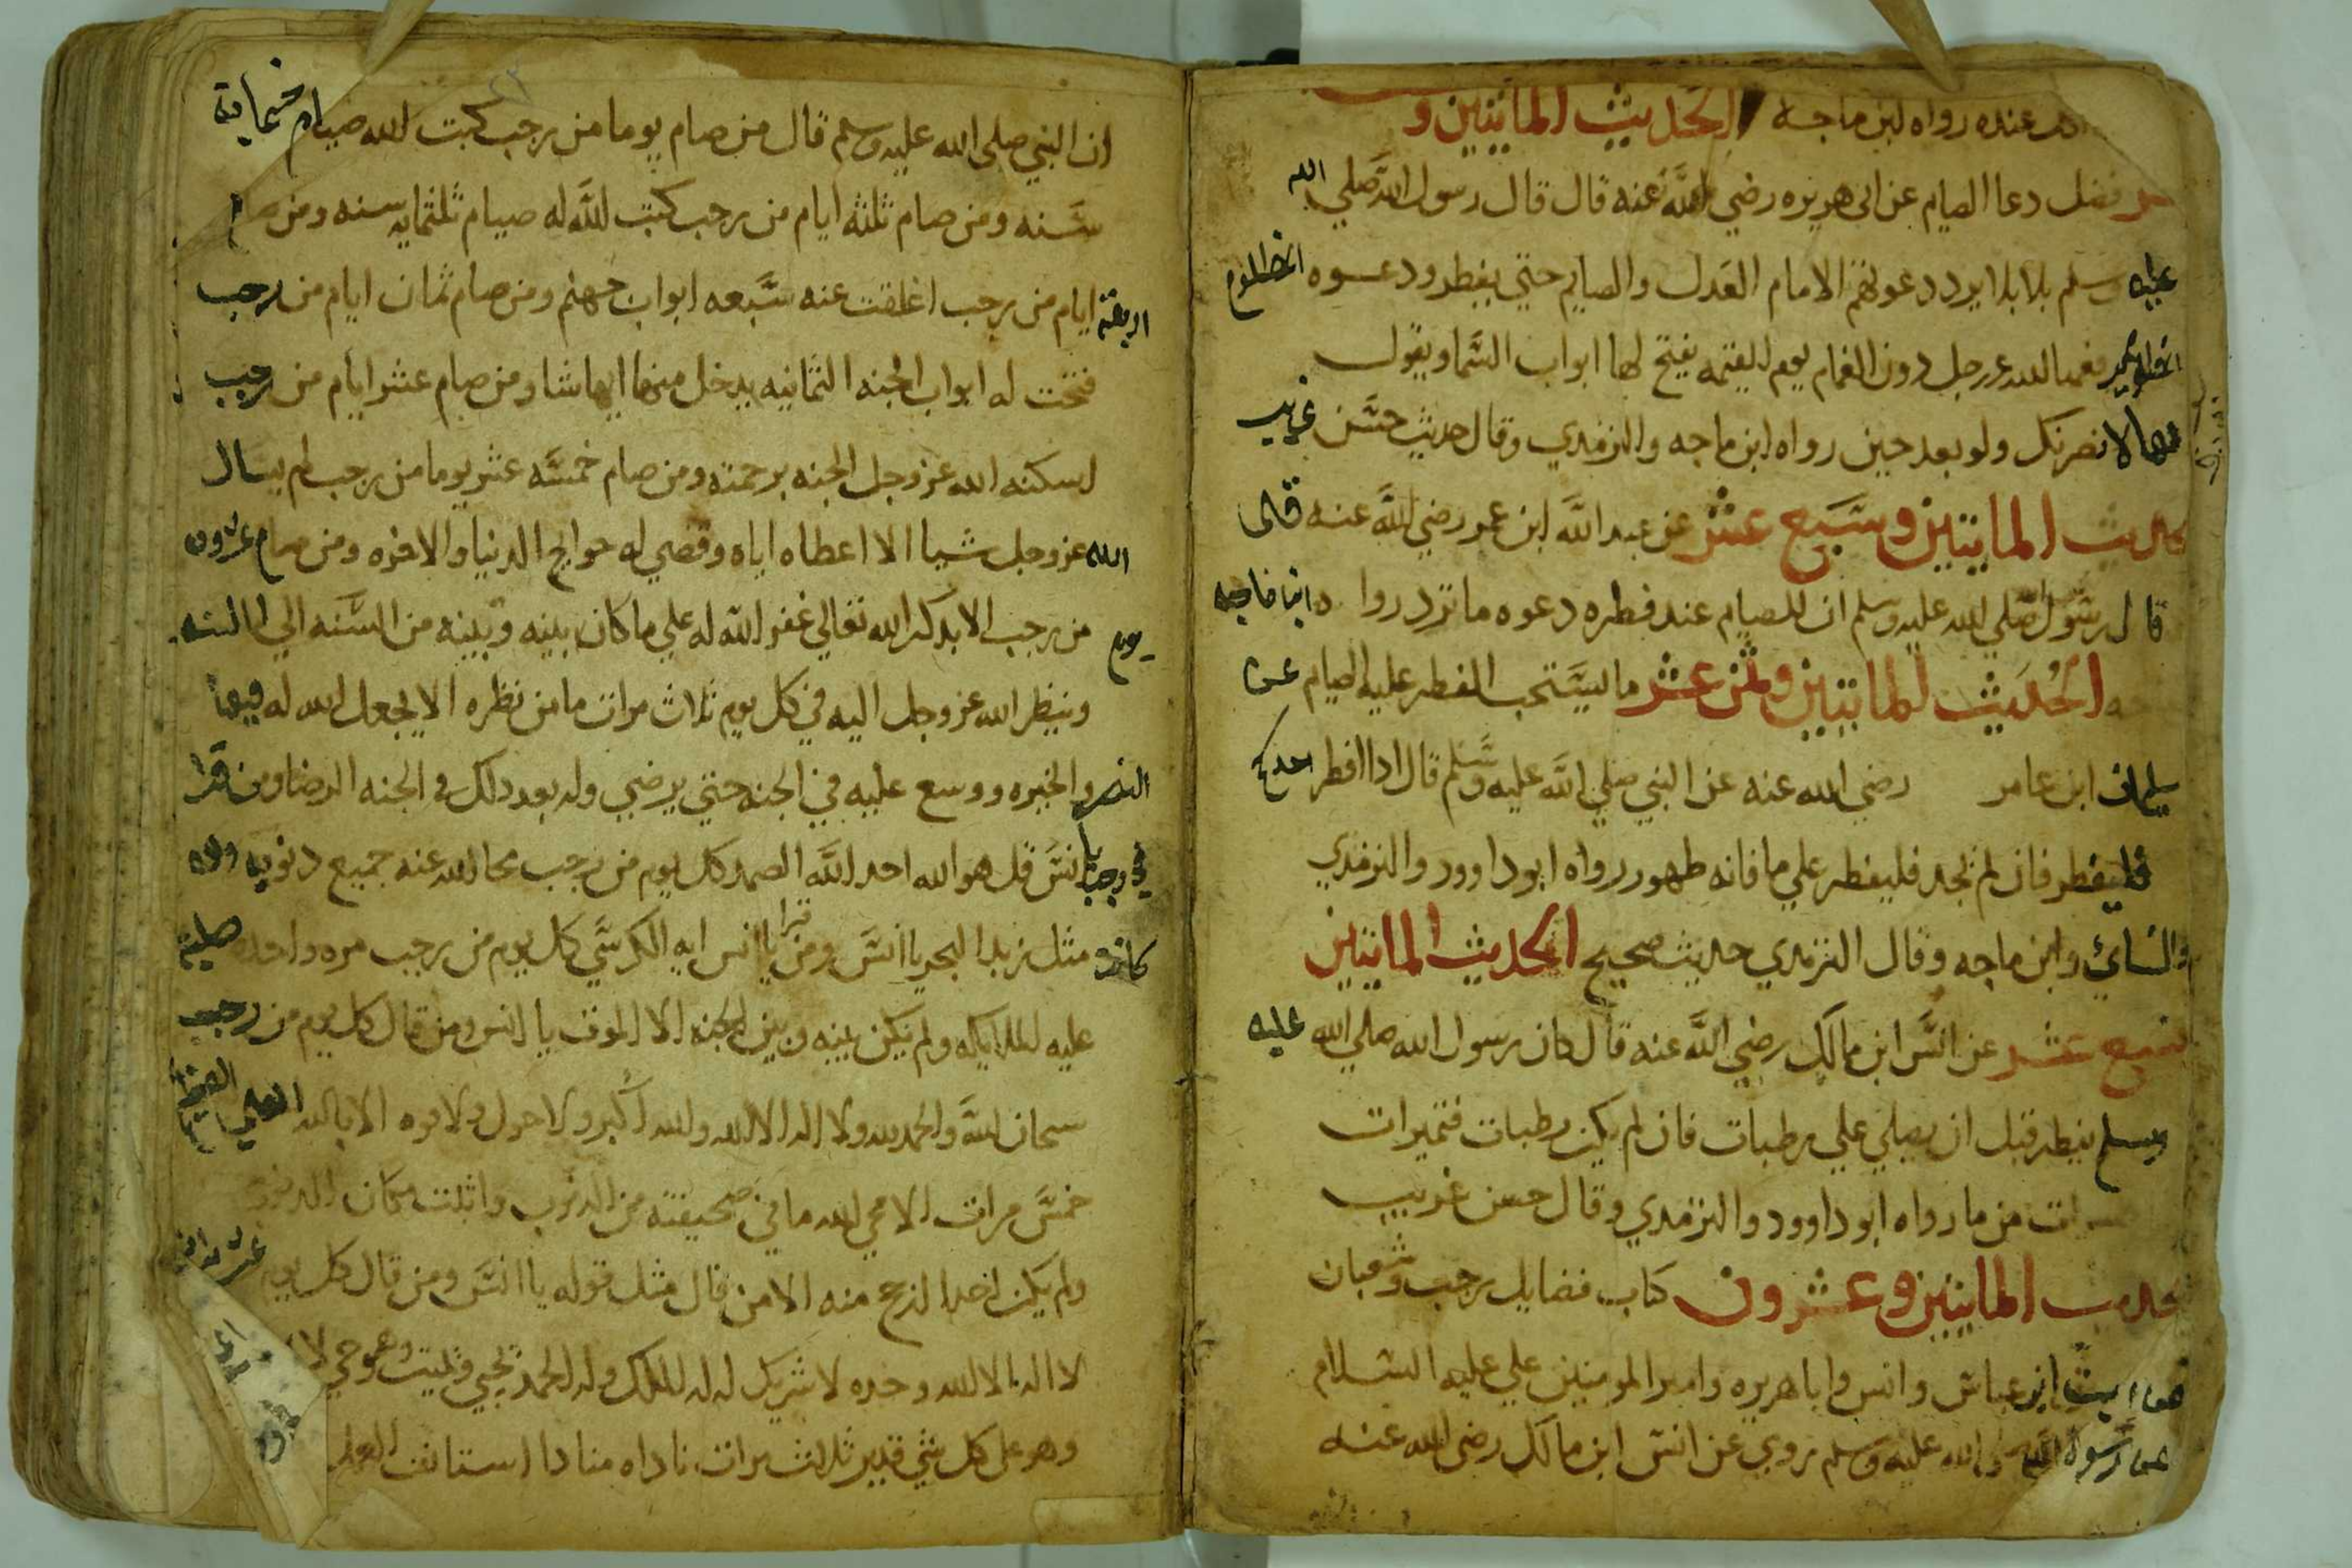 عنده رواه ابن ماجه الحديث المايتين و
فضل دعا الصايم عن ابي هريره رضي الله عنه قال قال رسول الله صلي الله
عليه وسلم ثلاثه لا يرد دعوتهم الامام العدل والصايم حتي يفطر ودعوه المظلوم
الله عز وجل دون الغمام يوم القيمه يفتح لها ابواب السما ويقول
لانصرنك ولو بعد حين رواه ابن ماجه والترمدي وقال حديث حسن غريب
الحديث المايتين وسبع عشر عن عبد الله ابن عمر رضي الله عنه قال
قال رسول الله صلي الله عليه وسلم ان للصايم عند فطره دعوه ما ترد روا ه ابن ماجه
الحديث المايتين وثمن عشر ما يستحب الفطر عليه الصيام عن
سلمان ابن عامر رضي الله عنه عن النبي صلي الله عليه وسلم قال ادا افطر احدكم
فليفطر فان لم يجد فليفطر علي ما فانه طهور رواه ابو داوود والترمدي
والنسائي وابن ماجه وقال الترمدي حديث صحيح الحديث المايتين
تسع عشر عن انس ابن مالك رضي الله عنه قال كان رسول الله صلي الله عليه
وسلم يفطر قبل ان يصلي علي رطبات فان لم يكن رطبات فتميرات
من ما رواه ابو داوود والترمدي وقال حسن غريب
الحديث المايتين وعشرون كتاب فضايل رجب وشعبان
ابن عباس وانس وابا هريره وامير المومنين علي عليه السلام
عن رسول الله صلي الله عليه وسلم روي عن انس ابن مالك رضي الله عنه
ان النبي صلي الله عليه وسلم قال من صام يوما من رجب كتب الله صيام خمسمايه
سنه ومن صام ثلثه ايام من رجب كتب الله له صيام ثلثمايه سنه ومن صام
ايام من رجب اغلقت عنه سبعه ابواب جهنم ومن صام ثمان ايام من رجب
فتحت له ابواب الجنه الثمانيه يدخل من ايها شا ومن صام عشر ايام من رجب
اسكنه الله عز وجل الجنه برحمته ومن صام خمسه عشر يوما من رجب لم يسال
الله عز وجل شيا الا اعطاه اياه وقضي له حوايج الدنيا والاخره ومن صام عشرون
يوم من رجب غفر الله له علي ما كان بينه وبينه من السنه الي السنه
وينظر الله عز وجل اليه في كل يوم ثلاث مرات ما من نظره الا يجعل الله له فيها
النصر والخيره ووسع عليه في الجنه حتي يرضي وله بعد دلك في الجنه الرضا ومن قرا
في رجب يا انس قل هو الله احد الله الصمد كل يوم من رجب محا الله عنه جميع دنوبه ولو
كانت مثل زبد البحر يا انس ومن قرا يا انس ايه الكرسي كل يوم من رجب مره واحده صليت
عليه الملايكه ولم يكن بينه وبين الجنه الا الموت يا انس ومن قال كل يوم من رجب
سبحان الله والحمد لله ولا اله الا الله والله اكبر ولا حول ولا قوه الا بالله العلي العظيم
خمس مرات الا محي الله ما في صحيفته من الدنوب واثبت مكان
ولم يكن احدا منه الا من قال مثل قوله يا انس ومن قال كل يوم عشر مرات
لا اله الا الله وحده لا شريك له له الملك وله الحمد يحيي ويميت وهو حي لا
وهو علي كل شي قدير ثلاث مرات ناداه مناد استانف العمل